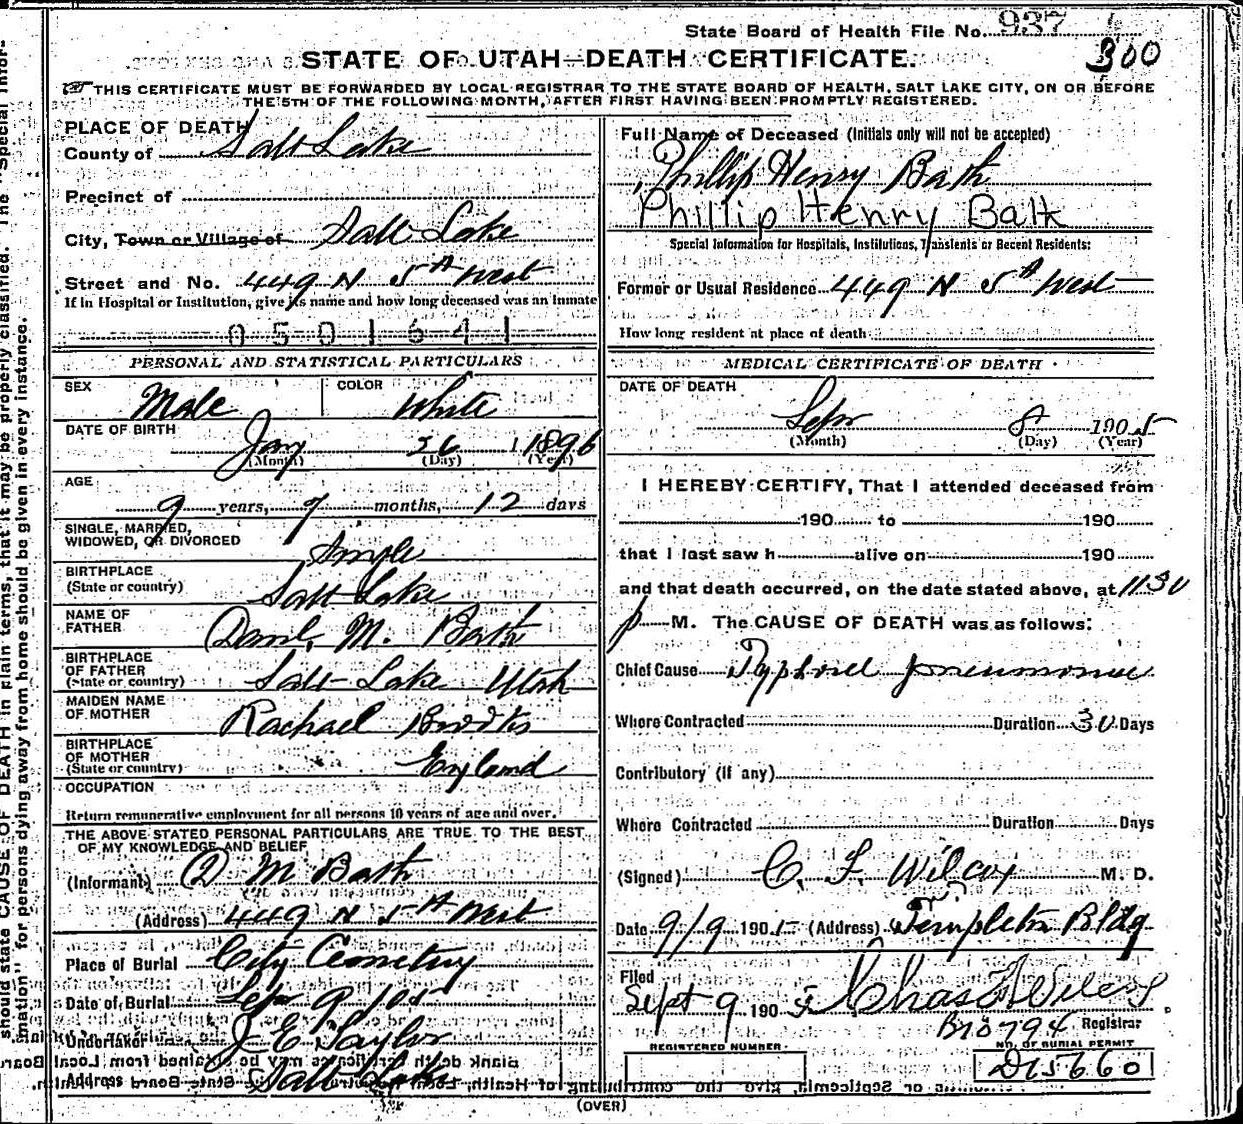 State Board of Health File No. 937
300
STATE OF UTAH—DEATH CERTIFICATE.
THIS CERTIFICATE MUST BE FORWARDED BY LOCAL REGISTRAR TO THE STATE BOARD OF HEALTH, SALT LAKE CITY, ON OR BEFORE
THE 5TH OF THE FOLLOWING MONTH, AFTER FIRST HAVING BEEN PROMPTLY REGISTERED.
PLACE OF DEATH
County of Salt Lake
Precinct of
City, Town or Village of Salt Lake
Street and No. 449 N 5th West
If in Hospital or Institution, give its name and how long deceased was an inmate
0501641
PERSONAL AND STATISTICAL PARTICULARS
SEX Male COLOR White
DATE OF BIRTH
Jany 26 1896
(Month) (Day) (Year)
AGE
9 years, 7 months, 12 days
SINGLE, MARRIED,
WIDOWED, OR DIVORCED Single
BIRTHPLACE
(State or country) Salt Lake
NAME OF
FATHER Danl. M. Bath
BIRTHPLACE
OF FATHER
(State or country) Salt Lake Utah
MAIDEN NAME
OF MOTHER Rachael Brooks
BIRTHPLACE
OF MOTHER
(State or country) England
OCCUPATION
Return remunerative employment for all persons 10 years of age and over.
THE ABOVE STATED PERSONAL PARTICULARS ARE TRUE TO THE BEST
OF MY KNOWLEDGE AND BELIEF
(Informant) D M Bath
(Address) 449 N 5th West
Place of Burial City Cemetery
Date of Burial Sep 9 1905
Undertaker J. E. Taylor
Address Salt Lake
Full Name of Deceased (Initials only will not be accepted)
Phillip Henry Bath
Phillip Henry Batk
Special Information for Hospitals, Institutions, Transients or Recent Residents:
Former or Usual Residence 449 N 5th West
How long resident at place of death
MEDICAL CERTIFICATE OF DEATH
DATE OF DEATH
Sept 8 1905
(Month) (Day) (Year)
I HEREBY CERTIFY, That I attended deceased from
190 to 190
that I last saw h alive on 190
and that death occurred, on the date stated above, at 1130
p M. The CAUSE OF DEATH was as follows:
Chief Cause Typhoid pneumonia
Where Contracted Duration 30 Days
Contributory (if any)
Where Contracted Duration Days
(Signed) C. F. Wilcox M. D.
Date 9/9 1905 (Address) Templeton Bldg
Filed
Sept 9 1905 Chas F Wilcox
B10794 Registrar
REGISTERED NUMBER
NO. OF BURIAL PERMIT
D15660
(OVER)
should state CAUSE OF DEATH in plain terms, that it may be properly classified. The "Special Infor-
mation" for persons dying away from home should be given in every instance.